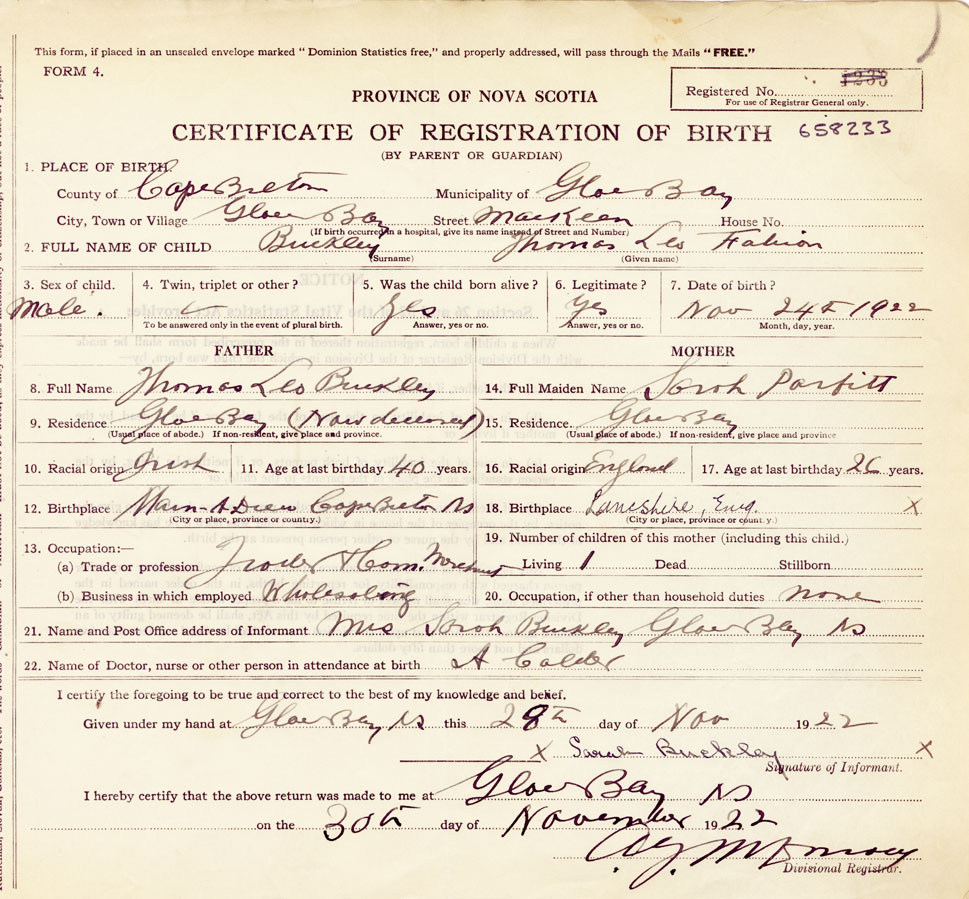 This form, if placed in an unsealed envelope marked " Dominion Statistics free," and properly addressed, will pass through the Mails "FREE."
FORM 4.
Registered No. 1233
For use of Registrar General only.
PROVINCE OF NOVA SCOTIA
CERTIFICATE OF REGISTRATION OF BIRTH 658233
(BY PARENT OR GUARDIAN)
1. PLACE OF BIRTH:
County of Cape Breton Municipality of Glace Bay
City, Town or Village Glace Bay Street MacKeen House No.
(If birth occurred in a hospital, give its name instead of Street and Number)
2. FULL NAME OF CHILD Buckley Thomas Leo Fabian
(Surname) (Given name)
3. Sex of child. 4. Twin, triplet or other? 5. Was the child born alive? 6. Legitimate? 7. Date of birth?
Male. Yes Yes Nov 24th 1922
To be answered only in the event of plural birth. Answer, yes or no. Answer, yes or no. Month, day, year.
FATHER MOTHER
8. Full Name Thomas Leo Buckley 14. Full Maiden Name Sarah Parfitt
9. Residence Glace Bay (Now deceased) 15. Residence Glace Bay
(Usual place of abode.) If non-resident, give place and province. (Usual place of abode.) If non-resident, give place and province
10. Racial origin Irish 11. Age at last birthday 40 years. 16. Racial origin England 17. Age at last birthday 26 years.
12. Birthplace Main-A-Dieu Cape Breton NS 18. Birthplace Lancshire, Eng. X
(City or place, province or country.) (City or place, province or country.)
13. Occupation:— 19. Number of children of this mother (including this child.)
(a) Trade or profession Trader & Com. Merchant Living 1 Dead Stillborn
(b) Business in which employed Wholesaling 20. Occupation, if other than household duties none
21. Name and Post Office address of Informant Mrs Sarah Buckley Glace Bay NS
22. Name of Doctor, nurse or other person in attendance at birth A Calder
I certify the foregoing to be true and correct to the best of my knowledge and belief.
Given under my hand at Glace Bay NS this 28th day of Nov 1922
X Sarah Buckley X
Signature of Informant.
I hereby certify that the above return was made to me at Glace Bay NS
on the 30th day of November 1922
Divisional Registrar.